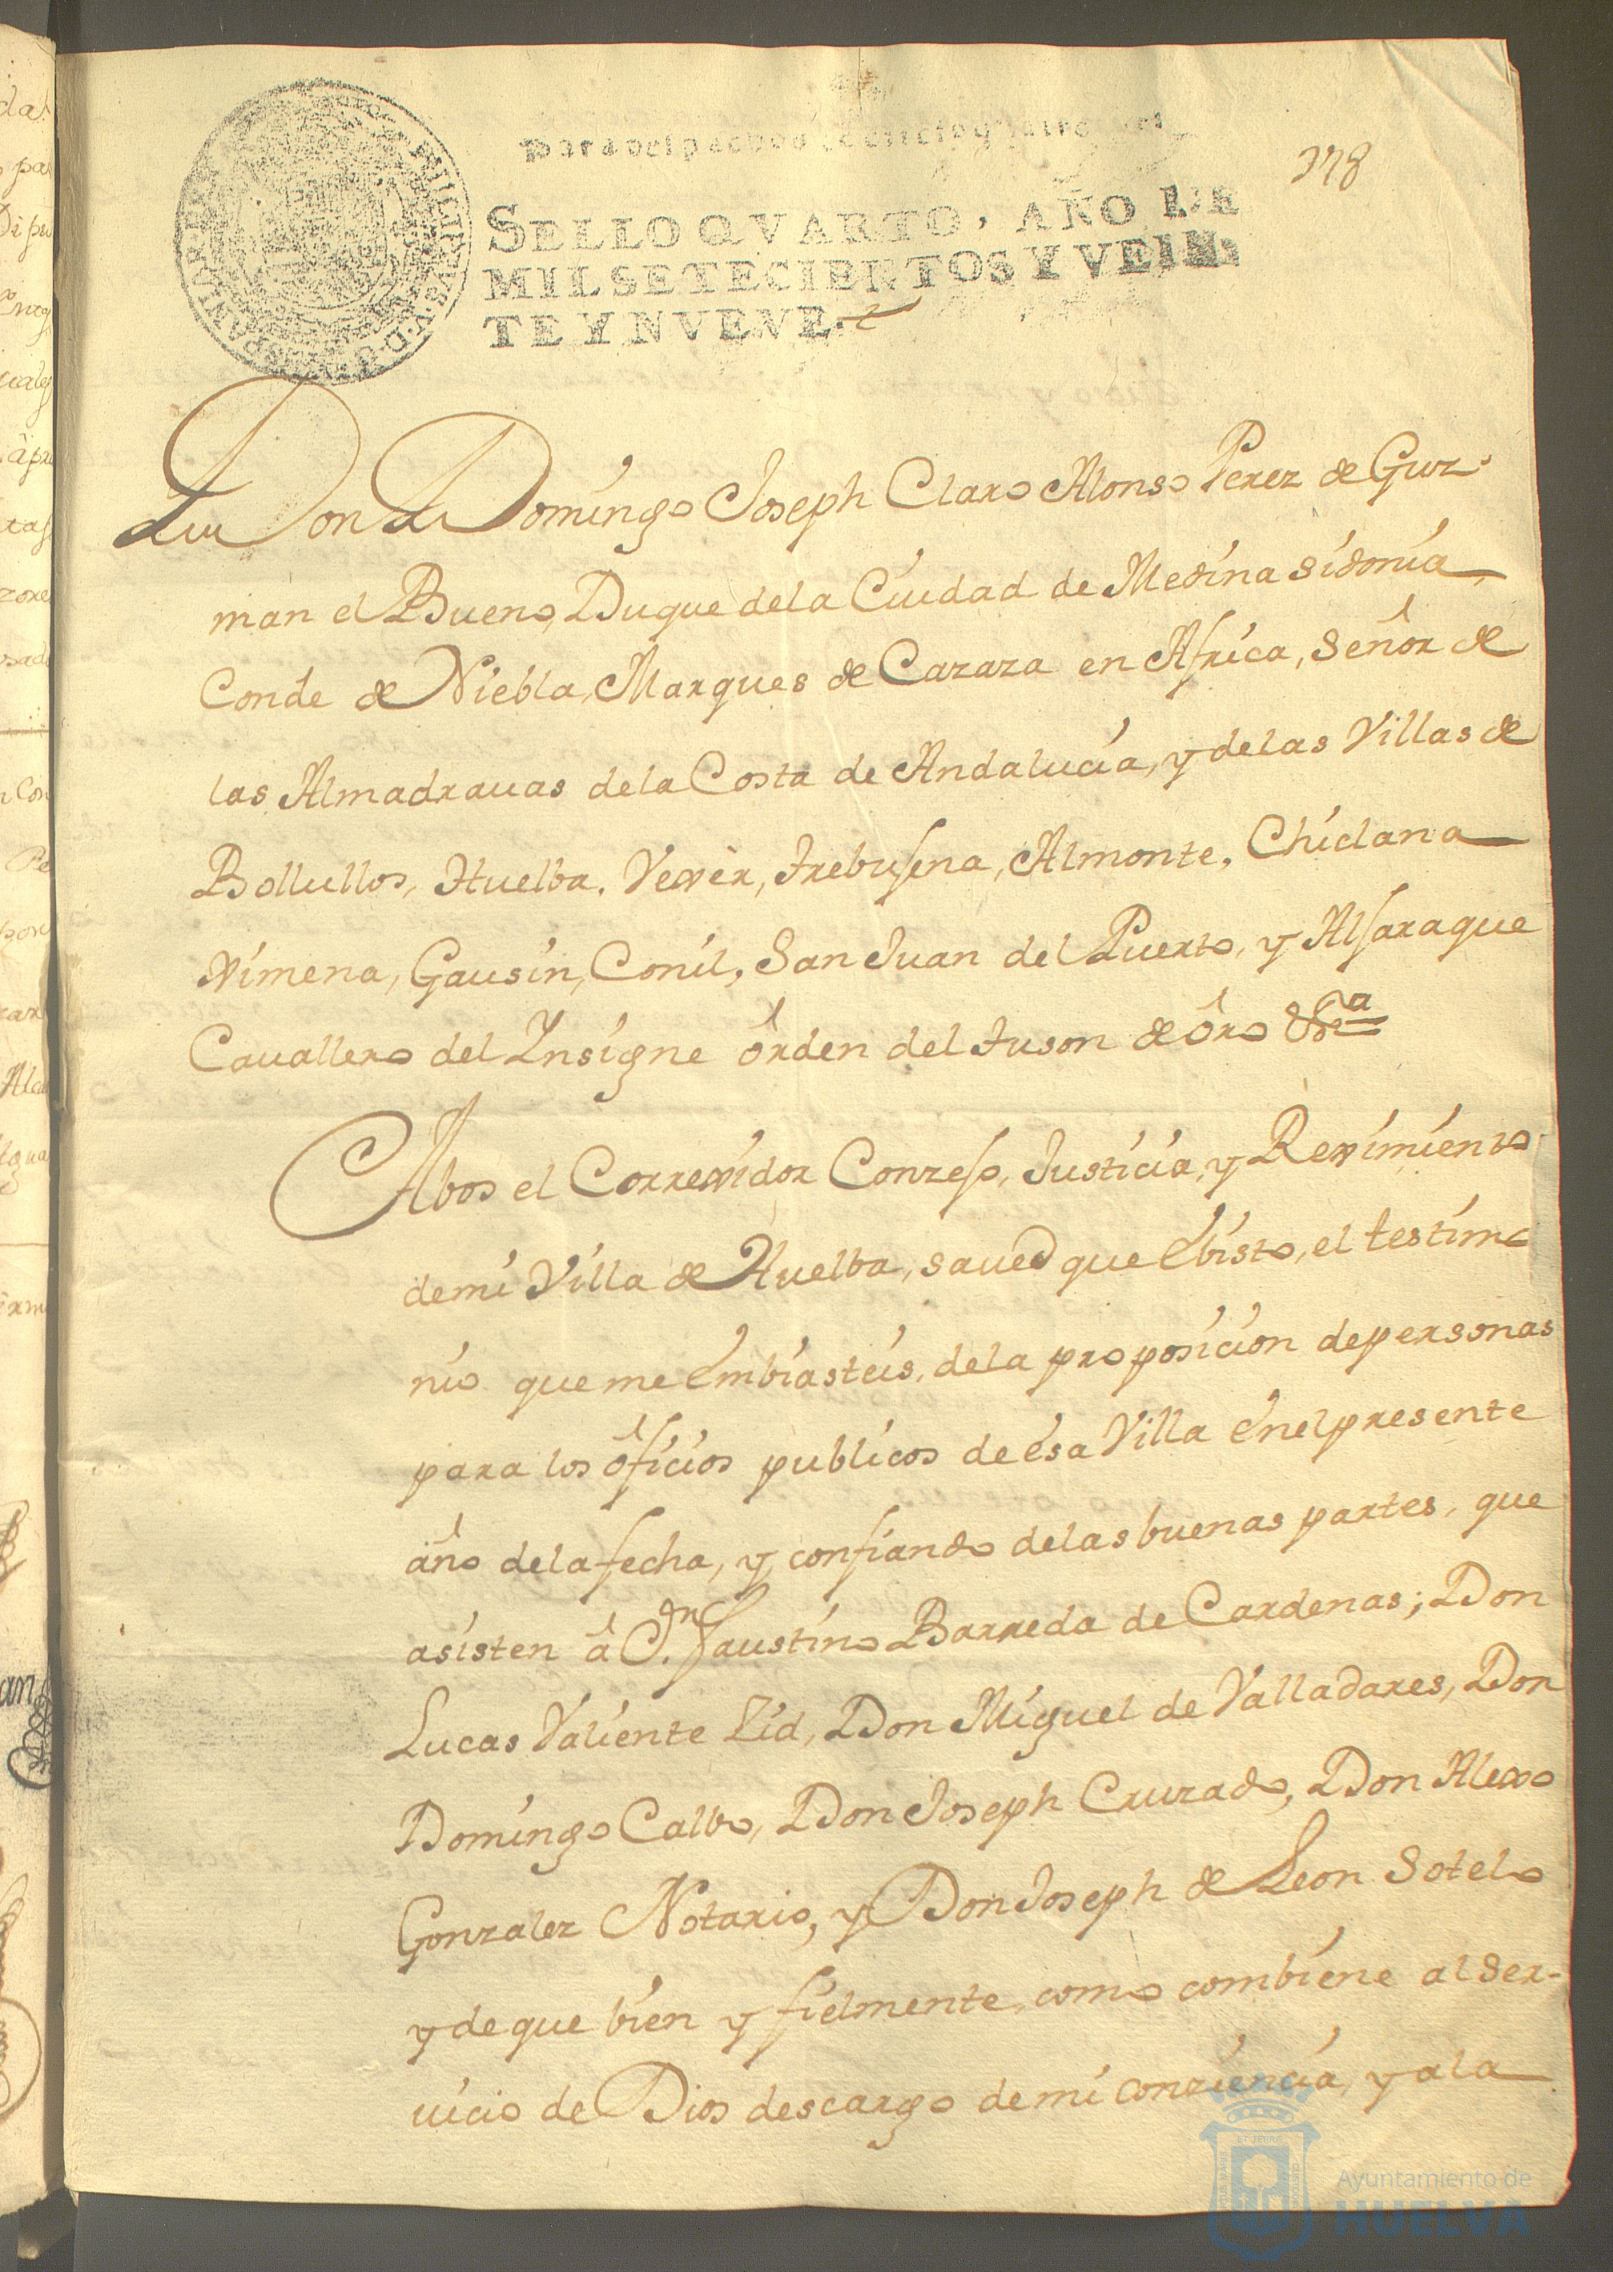 Para despachos de oficio quatro mrs
378
SELLO QVARTO, AÑO DE
MIL SETECIENTOS Y VEIN-
TE Y NVEVE.
Don Domingo Joseph Claro Alonso Perez de Guz-
man el Bueno, Duque dela Ciudad de Medina Sidonia,
Conde de Niebla, Marques de Cazaza en Africa, Señor de
las Almadrauas dela Costa de Andalucia, y delas Villas de
Bollullos, Huelba, Vexèr, Trebujena, Almonte, Chiclana
Ximena, Gausin, Conil, San Juan del Puerto, y Alfaraque
Cauallero del Insigne Orden del Tuson de Oro &ra
Abos el Correxidor Conzejo, Justicia, y Reximiento
demi Villa de Huelba, saued que è bisto, el testimo
nio que me embiasteis, dela proposicion depersonas
para los oficios publicos de esa Villa enelpresente
año delafecha, y confiando delas buenas partes, que
asisten â Dn. Faustino Barreda de Cardenas; Don
Lucas Valiente Zid, Don Miguel de Valladares, Don
Domingo Calbo, Don Joseph Cruzado, Don Alexo
Gonzalez Notario, y Don Joseph de Leon Sotelo
y deque bien y fielmente, como combiene al Ser-
uicio de Dios descargo demi conziencia, y ala
Ayuntamiento de
HUELVA